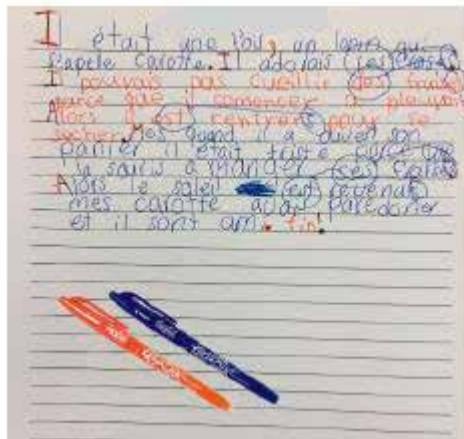 Il était une fois, un lapin qui
s'apele Carotte. Il adorais (ses)
Il pouvais pas cueillir des frais
parce que comencer à pleuvoir
Alors il est rentrer pour se
secher. Mes quand il a ouvert son
panier il était triste parce que
la souris a manger (ses) frais
Alors le soleil (est) revenat
mes carotte
et il sont ami. fin!